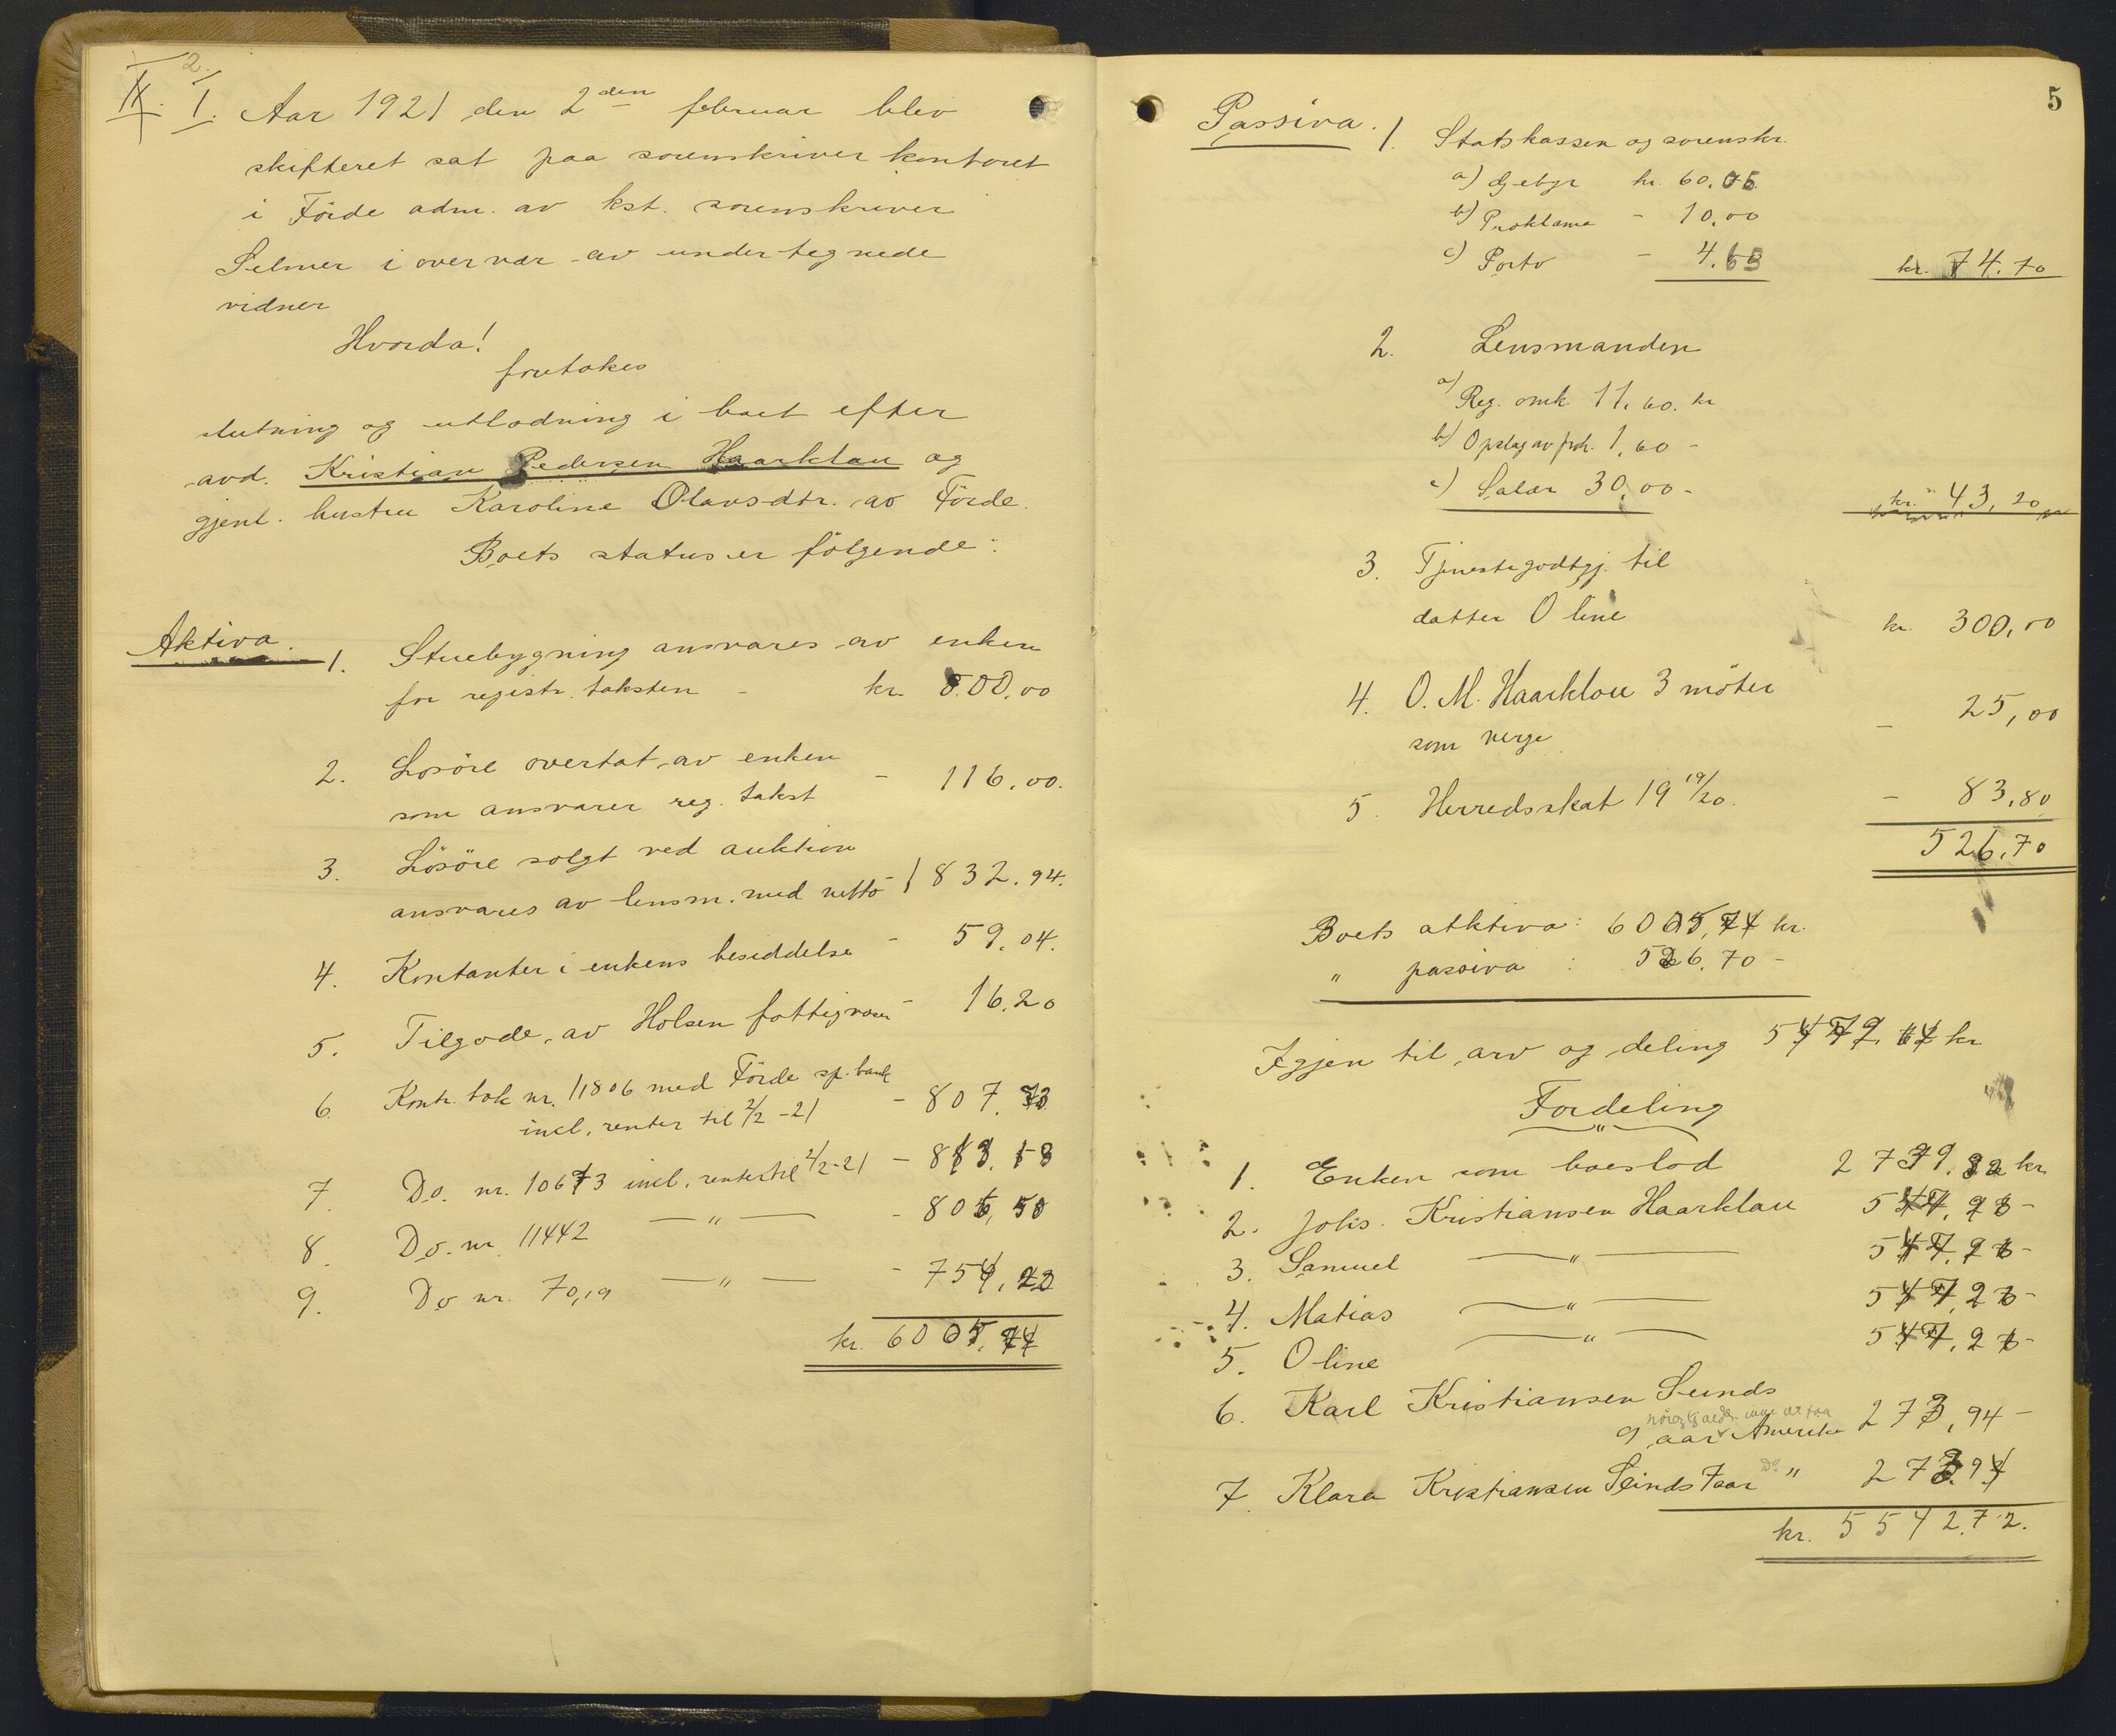 2.
II. I. Aar 1921 den 2den februar blev
skifteret sat paa sorenskriver kontoret
i Förde adm. av kst. sorenskriver
Selmer i overvær av undertegnede
vidner
Hvorda!
foretokes
slutning og utlodning i boet efter
avd. Kristian Pedersen Haarklau og
gjenl. hustru Karoline Olavsdtr. av Förde.
Boets status er fölgende:
Aktiva. 1. Stuebygning ansvares av enken
for registr. taksten - kr. 800,00
2. Losöre overtat av enken
som ansvarer reg. takst - 116,00.
3. Lösöre solgt ved auktion
ansvares av lensm. med netto - 1832.94.
4. Kontanter i enkens besiddelse - 59,04.
5. Tilgode av Holsen fattigvæsen - 16.20
6. Kontr. bok nr. 11806 med Förde sp.bank
incl. renter til 2/2-21 - 807.
7. Do. nr. 10673 incl. renter til 2/2-21 -
8. Do. nr. 11442 — " — -
9. Do nr. 70,19 — " — -
kr. 6005,
5
Passiva. 1. Statskassen og sorenskr.
a) Gebyr kr. 60.05
b) Proklama - 10,00
c) Porto - 4.65 kr. 74.70
2. Lensmanden
a) Reg. omk. 11,60. kr
b) Opslag av prok. 1,60 -
c) Salær 30,00 - kr. 43,20
3. Tjenestegodtgj. til
datter Oline kr. 300,00
4. O. M. Haarklau 3 möter
som verge - 25,00
5. Herredsskat 19 19/20. - 83,80
526,70
Boets atktiva: 6005, kr.
" passiva: 526,70 -
Igjen til arv og deling 5479, kr
Fordeling
"
1. Enken som boeslod 2739, kr.
2. Johs. Kristiansen Haarklau 547,
3. Samuel — " — 547,
4. Matias — " — 547,
5. Oline — " — 547,
6. Karl Kristiansen Sunds
9 aar Amerika 273,94 -
7. Klara Kristiansen Sunds 7 aar Do " 273.94
kr. 5542.72.